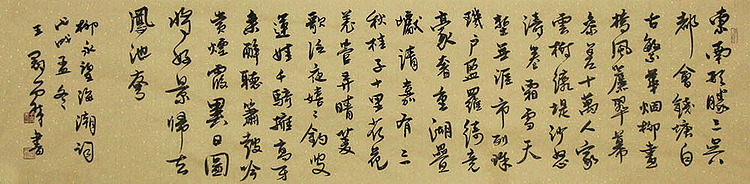 東南形勝三吳
都會錢塘自
古繁華烟柳畫
橋風簾翠幕
參差十萬人家
雲樹繞堤沙怒
濤卷霜雪天
塹無涯市列珠
璣戶盈羅綺競
豪奢重湖疊
巘清嘉有三
秋桂子十里荷花
羌管弄晴菱
歌泛夜嬉々釣叟
蓮娃千騎擁高牙
乘醉聽簫鼓吟
賞煙霞異日圖
將好景歸去
鳳池夸
柳永望海潮詞
戊戌孟冬
王 書